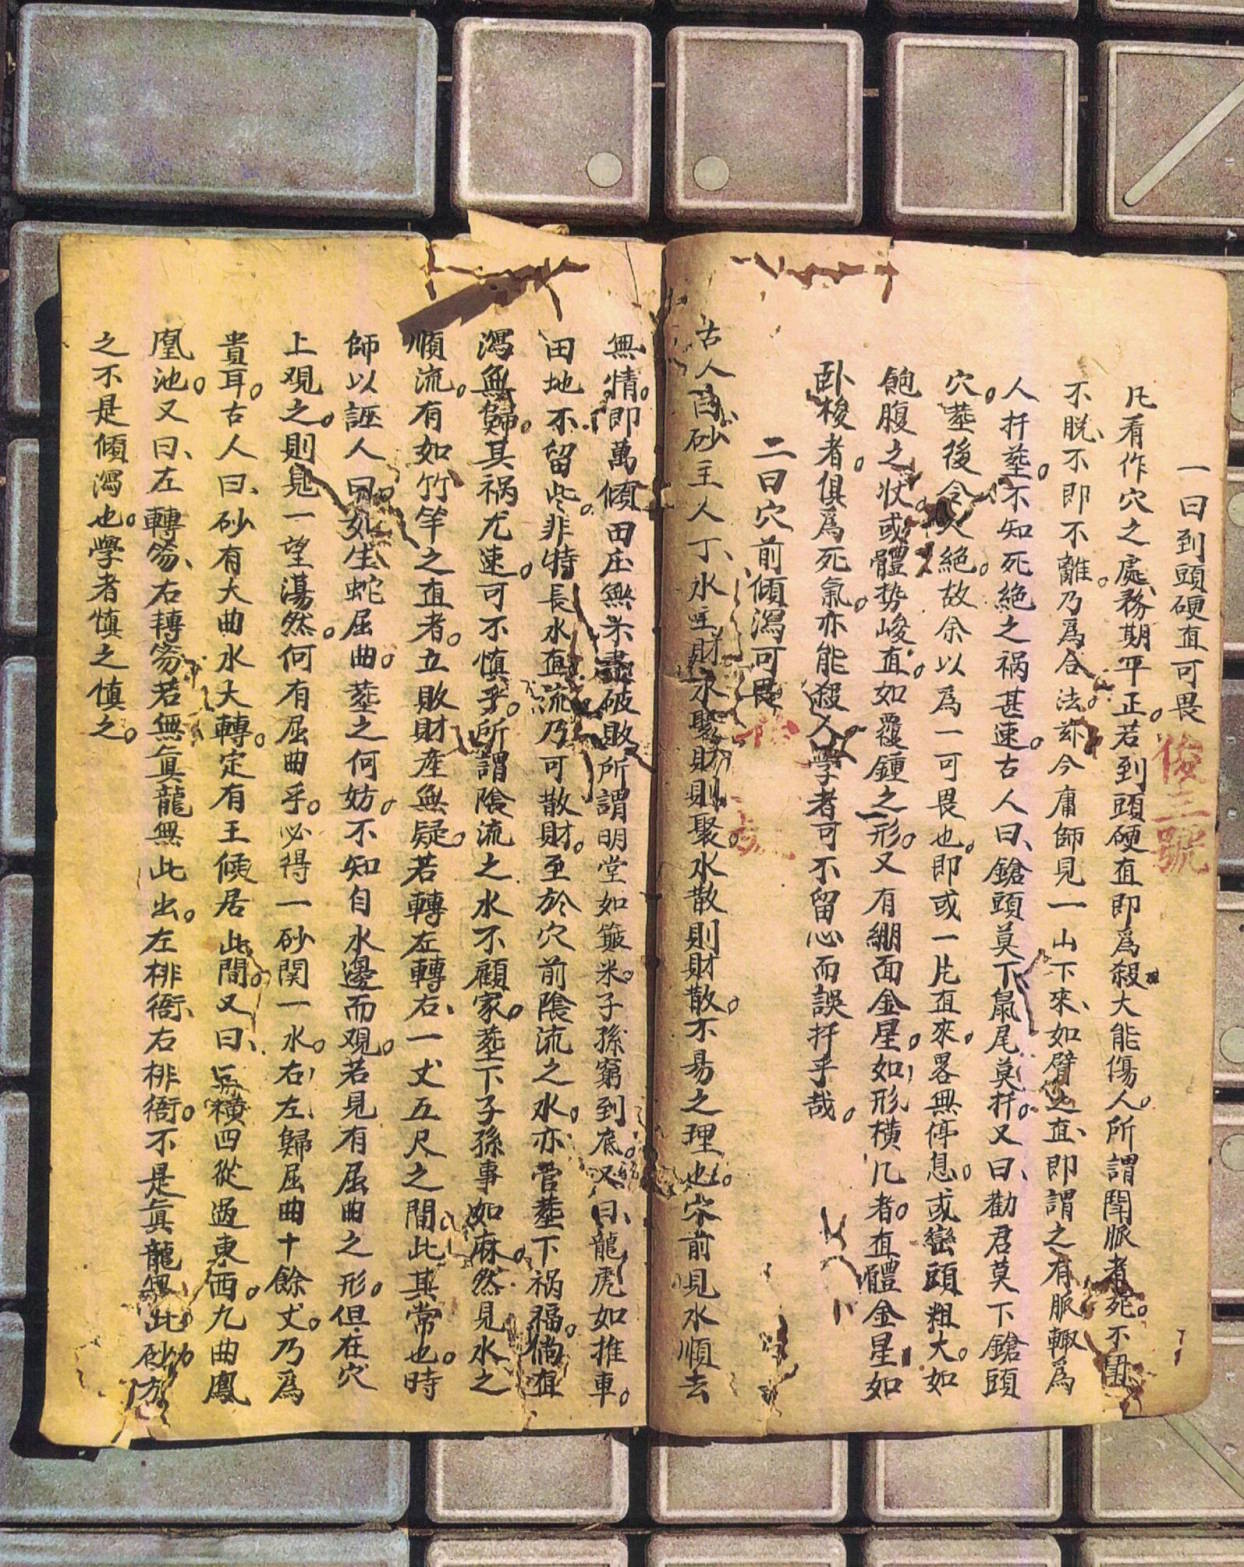 一曰到頭硬直可畏
俊三號
凡看作穴之處、務期平正。若到頭硬直即為殺大能傷人。所謂閗脈者死。不
不脱、不即不離。乃為合法。今庸師見一山下來、如臂之直、即謂之有脈輙為
人扦塟。不知死絶之禍甚速。古人曰、鎗頭莫下䑕尾莫扦。又曰、勸君莫下鎗頭
穴。塟後令人絶。故余以為一可畏也。即或一片直來。畧無停息。或巒頭粗大。如
飽腹之状或體势峻直。如覆鍾之形。又有綳面金星。如形横几者。直體金星如
卧梭者。俱為死氣。亦能殺人學者可不留心而誤扦乎哉。
二曰穴前傾瀉可畏
古人曰、砂主人丁、水主財、水聚財則聚水散則財散。不易之理也。穴前見水順去
無情。即萬傾田庄無米。盡破敗所謂明堂如簸米。子孫窮到底。又曰、龍虎如推車。
田地不留些。非特長水直流乃可散財。至於穴前陰流之水。亦管塟下禍福。倘直
瀉無歸。其禍尤速。可不慎乎。所謂陰流之水不顧家。塟下子孫事如麻。然見水之
順流。有如竹竿之直者。立敗財産無疑。若轉左轉右、一丈五尺之間此其常也。時
師以誣人曰、如生蛇屈曲。塟之何妨。不知自水邊而观。若見有屈曲之形。但在穴
上观之。則見一望湯然。何有屈曲乎。必得一砂関一水。右左歸屈曲十餘丈。乃為
貴耳。古人曰、砂有大曲水大轉。定有王候居此間。又曰、横四從過東西九曲鳳
凰池。又曰、左轉右轉若無真龍無此出。左排衙右排衙。不是真龍無此砂方
之不是傾瀉也。學者慎之慎之。